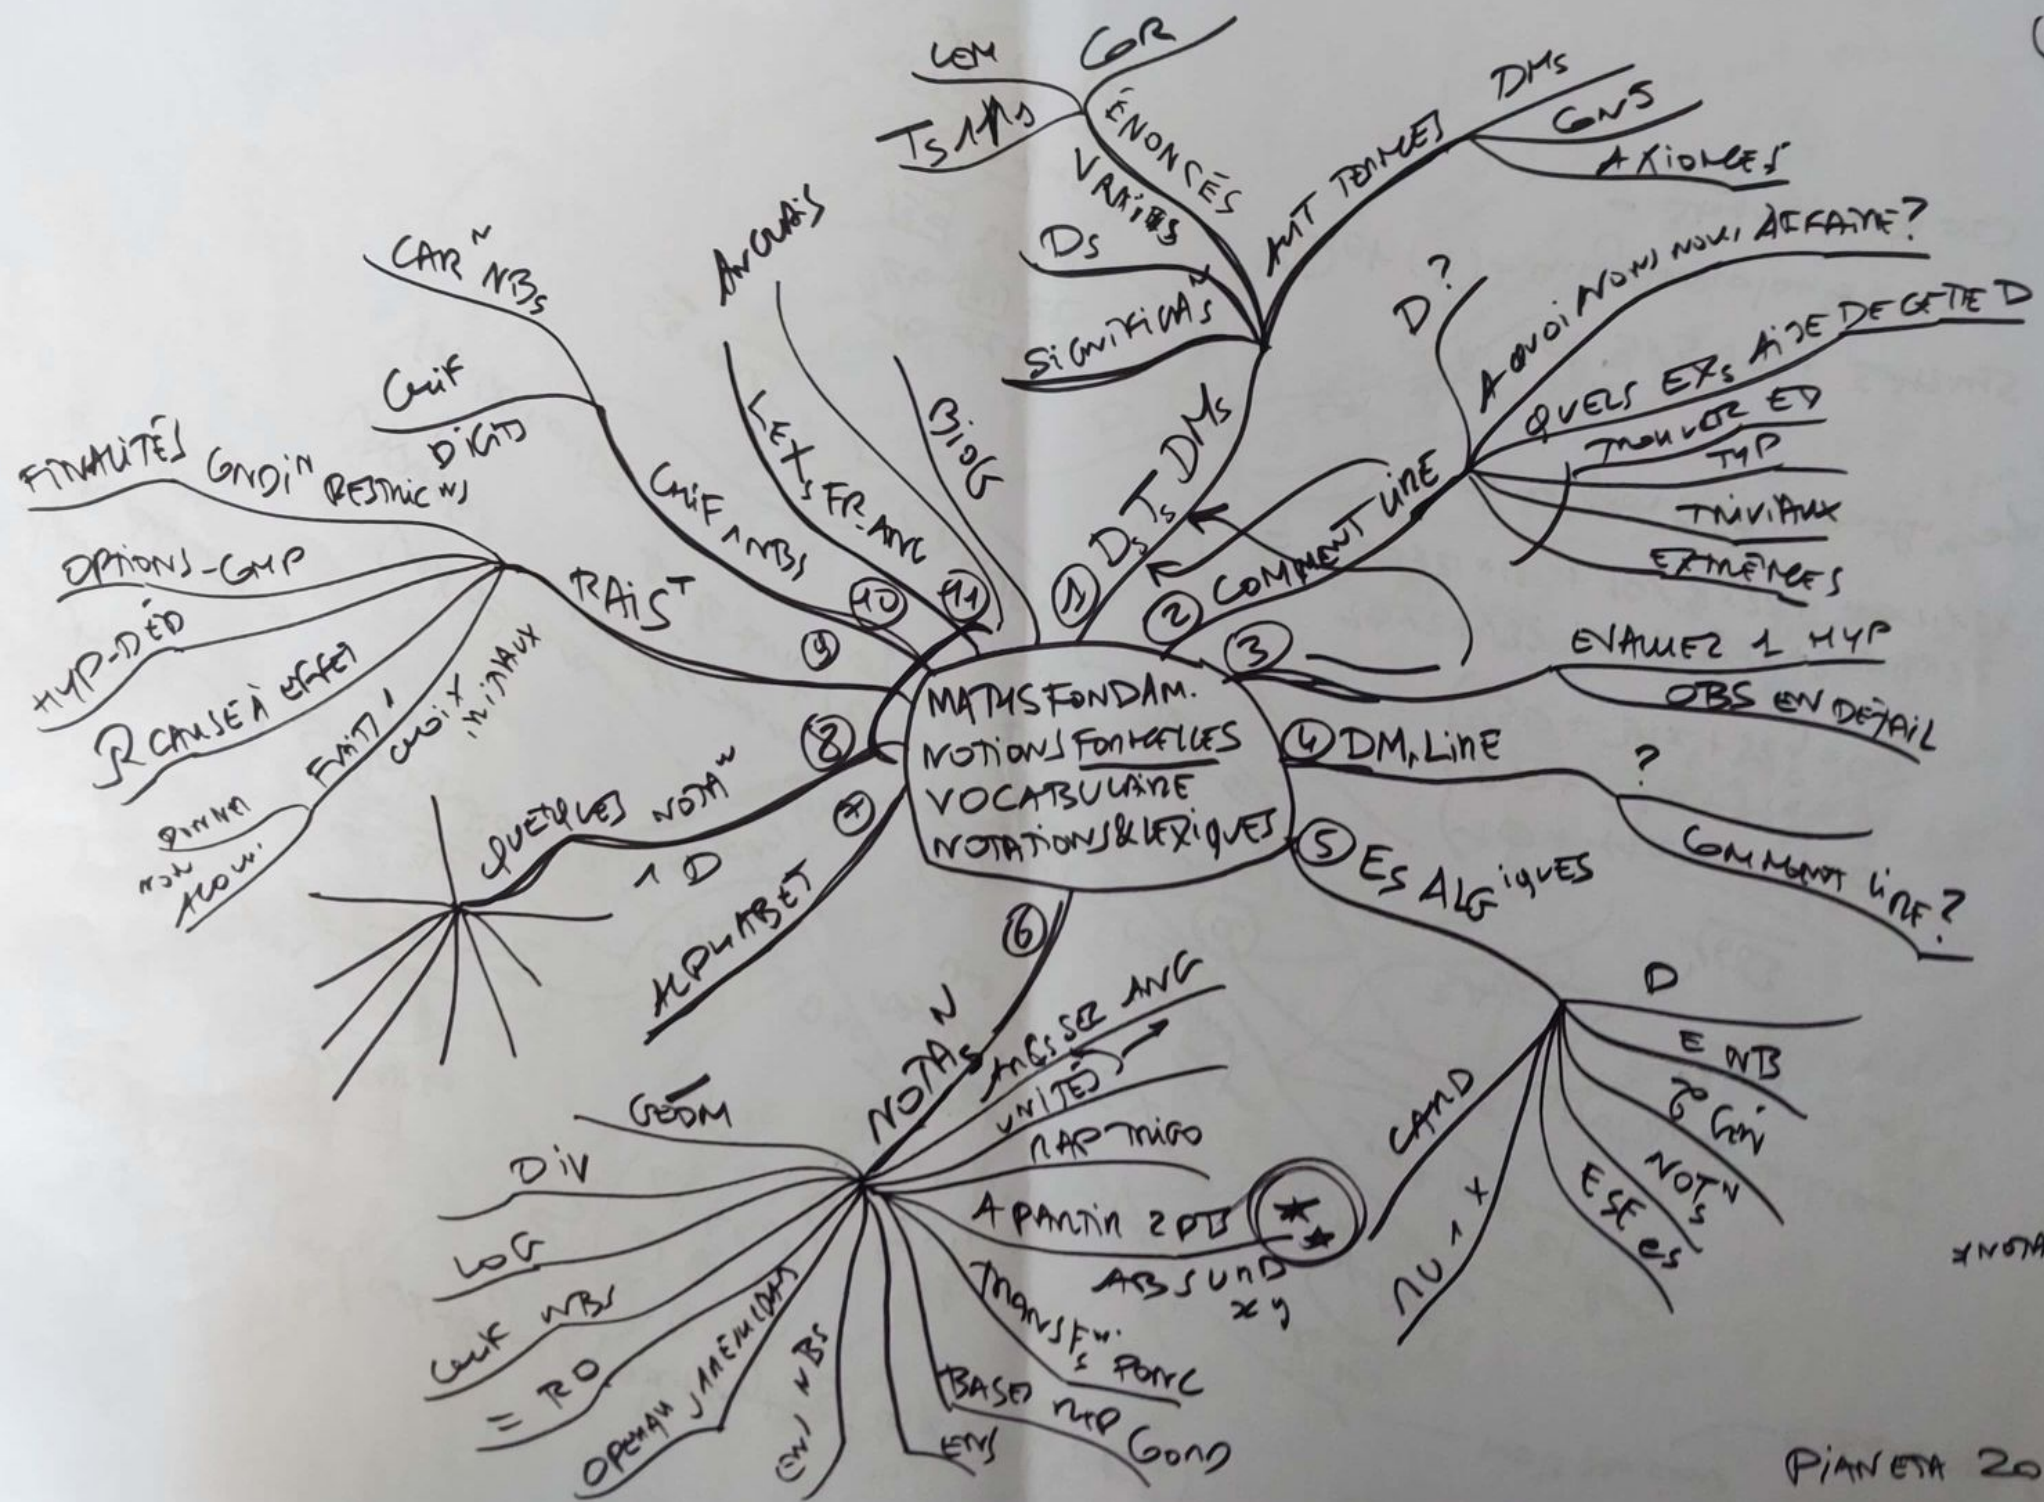 MATHS FONDAM.
NOTIONS FORMELLES
VOCABULAIRE
NOTATIONS & LEXIQUES
1 Ds Ts DMs
SIGNIFICAsN
Ds
ÉNONCÉS
VRAIES
LEM
COR
AUT TERMES
DMs
CONS
AXIOMES
2 COMMENT LIRE
D?
A QUOI AVONS NOUS AFFAIRE?
QUELS EXs AISE DE CETTE D
TROUVER ED
TYP
TRIVIAUX
EXTRÊMES
3
EVALUER 1 HYP
OBS EN DÉTAIL
4 DM, LIRE
?
COMMENT LIRE?
5 Es ALGiques
D
E NB
NOTsN
CARD
6 NOTAsN
ANG
UNITÉS
RAP TRIGO
A PARTIR 2 PTS
ABS URD
x y
TRANSFsN. PONC
BASES REP COORD
ENS
ENS NBS
= RD
CHIF NBS
LOG
DIV
GÉOM
7 ALPHABET
8 QUELQUES NOTAN
1 D
9 RAIST
FINALITÉS CONDIN RESTRICNS
OPTIONS-COMP
HYP-DÉD
R CAUSE À EFFET
CHOIX INITIAUX
NON
10 CHIF 1 NBS
CARN NBS
CHIF
DIGITS
11 LEXs FR-ANG
ANGLAIS
BIOG
PIANETA 20